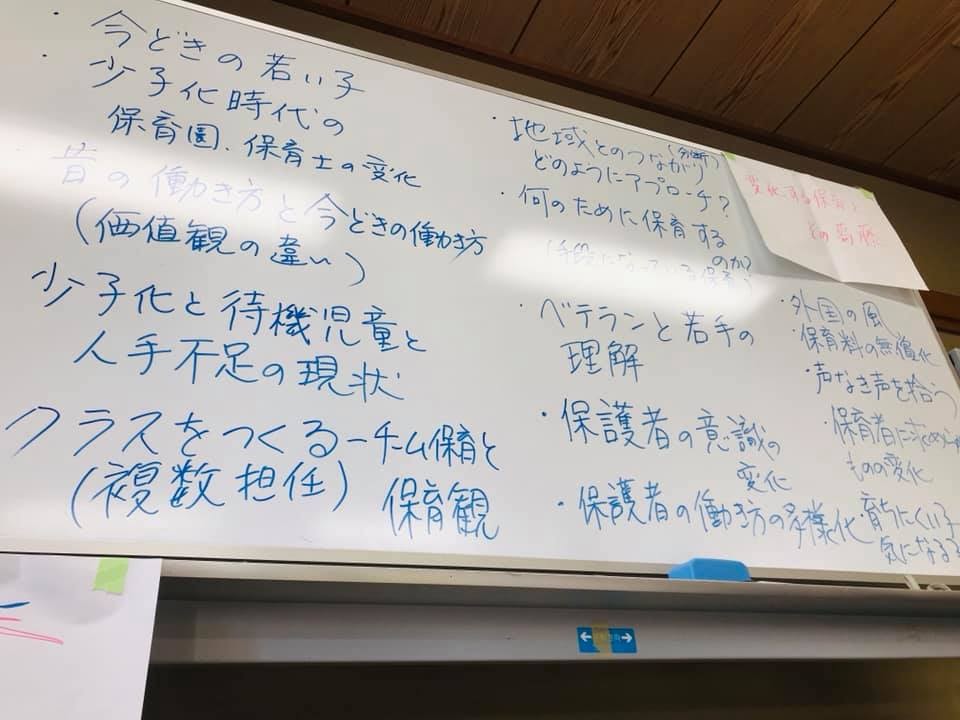 ・今どきの若い子
・少子化時代の
保育園、保育士の変化
・昔の働き方と今どきの働き方
(価値観の違い)
少子化と待機児童と
人手不足の現状
クラスをつくるーチーム保育と
(複数担任) 保育観
・地域とのつながり(分断)
どのようにアプローチ?
・何のために保育する
のか?
(手段になっている保育)
・ベテランと若手の
理解
・保護者の意識の
変化
・保護者の働き方の多様化
変化する保育と
その葛藤
・外国の風
・保育料の無償化
・声なき声を拾う
・保育者に求め
ものの変化
・育ちにくい子
気になる子